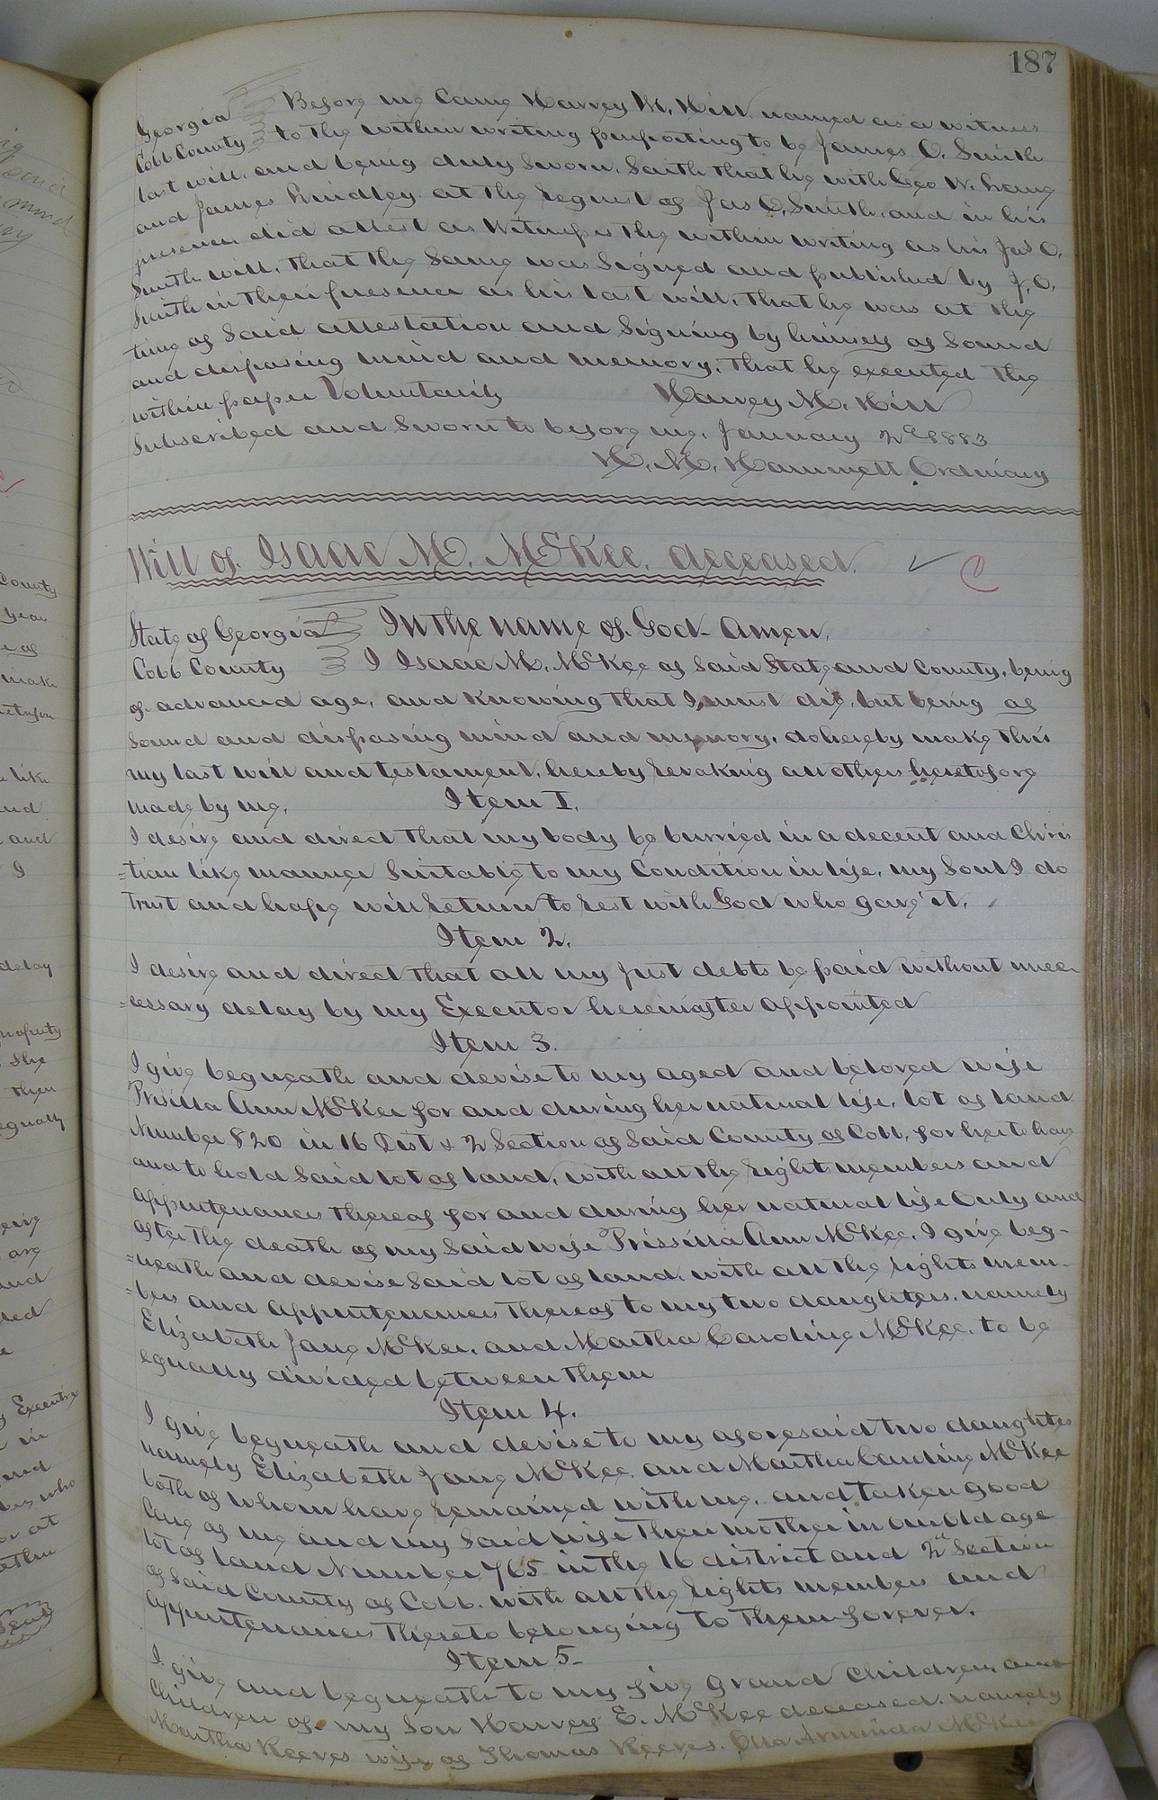 187
Georgia Before me came Harvey M. Hill named as a witness
Cobb County to the within writing purporting to be James O. Smith
last will, and being duly sworn, saith that he with Geo W. Lang
and James Lindley at the request of Jas O. Smith, and in his
presence did attest as witnesses the within writing as his Jas O.
Smith will, that the same was signed and published by J. O.
Smith in their presence as his last will, that he was at the
time of said attestation and signing by himself of sound
and disposing mind and memory, that he executed the
within paper Voluntarily Harvey M. Hill
Subscribed and Sworn to before me, January 2d 1883
H. M. Hammett Ordinary
Will of Isaac M. McKee, deceased.
State of Georgia In the name of God Amen,
Cobb County I Isaac M. McKee of said State and County, being
of advanced age, and knowing that I must die, but being of
sound and disposing mind and memory, do hereby make this
my last will and testament, hereby revoking all others heretofore
made by me. Item 1.
I desire and direct that my body be burried in a decent and Chris
=tian like manner suitable to my Condition in life, my Soul I do
trust and hope will return to rest with God who gave it.
Item 2.
I desire and direct that all my just debts be paid without unec
=cessary delay by my Executor hereinafter appointed
Item 3.
I give bequeath and devise to my aged and beloved wife
Prisilla Ann McKee for and during her natural life, lot of land
Number 820 in 16 Dist & 2 Section of said County of Cobb, for her to have
and to hold said lot of land, with all the rights members and
appurtenances thereof for and during her natural life Only and
after the death of my said wife Prissilla Ann McKee, I give beq-
=ueath and devise said lot of land, with all the rights mem-
=bers and appurtenances thereof to my two daughters, namely
Elizabeth Jane McKee, and Martha Caroline McKee, to be
equally divided between them
Item 4.
I give bequeath and devise to my aforesaid two daughters
namely Elizabeth Jane McKee and Martha Caroline McKee
both of whom have remained with me, and taken good
Care of me and my said wife their mother in our old age
lot of land Number 765 in the 16 district and 2d Section
of said County of Cobb, with all the rights members and
appurtenances thereto belonging to them forever.
Item 5-
I give and bequeath to my five grand Children and
Children of my Son Harvey E. McKee deceased, namely
Martha Reeves wife of Thomas Reeves, Arminda McKee